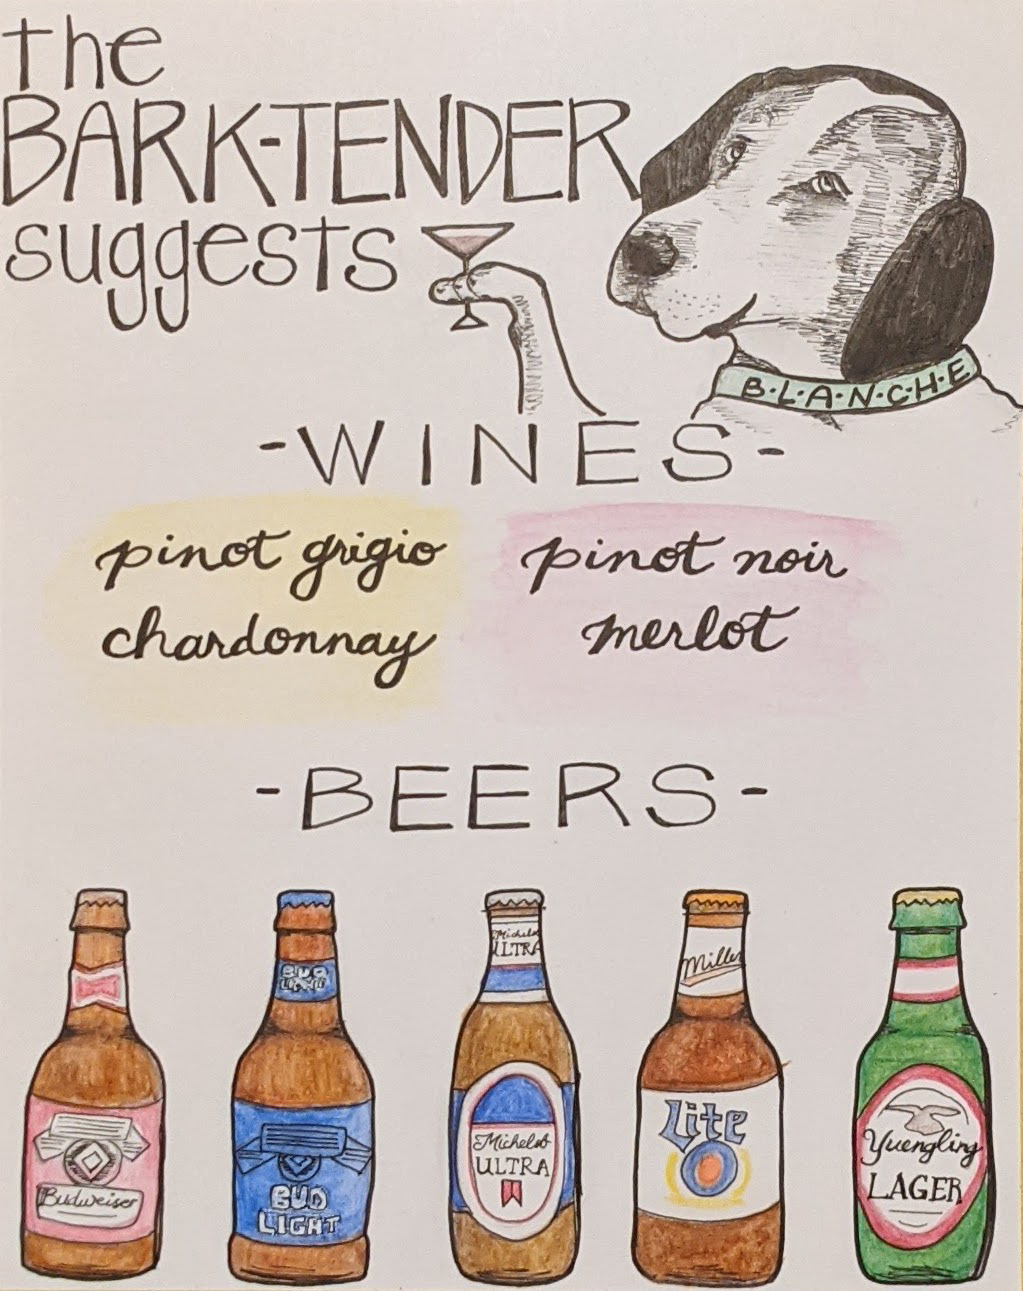 the
BARK-TENDER
suggests
B·L·A·N·C·H·E
-WINES-
pinot grigio
pinot noir
chardonnay
merlot
-BEERS-
Budweiser
BUD
LIGHT
BUD
LIGHT
Michelob
ULTRA
Michelob
ULTRA
Miller
Lite
Yuengling
LAGER